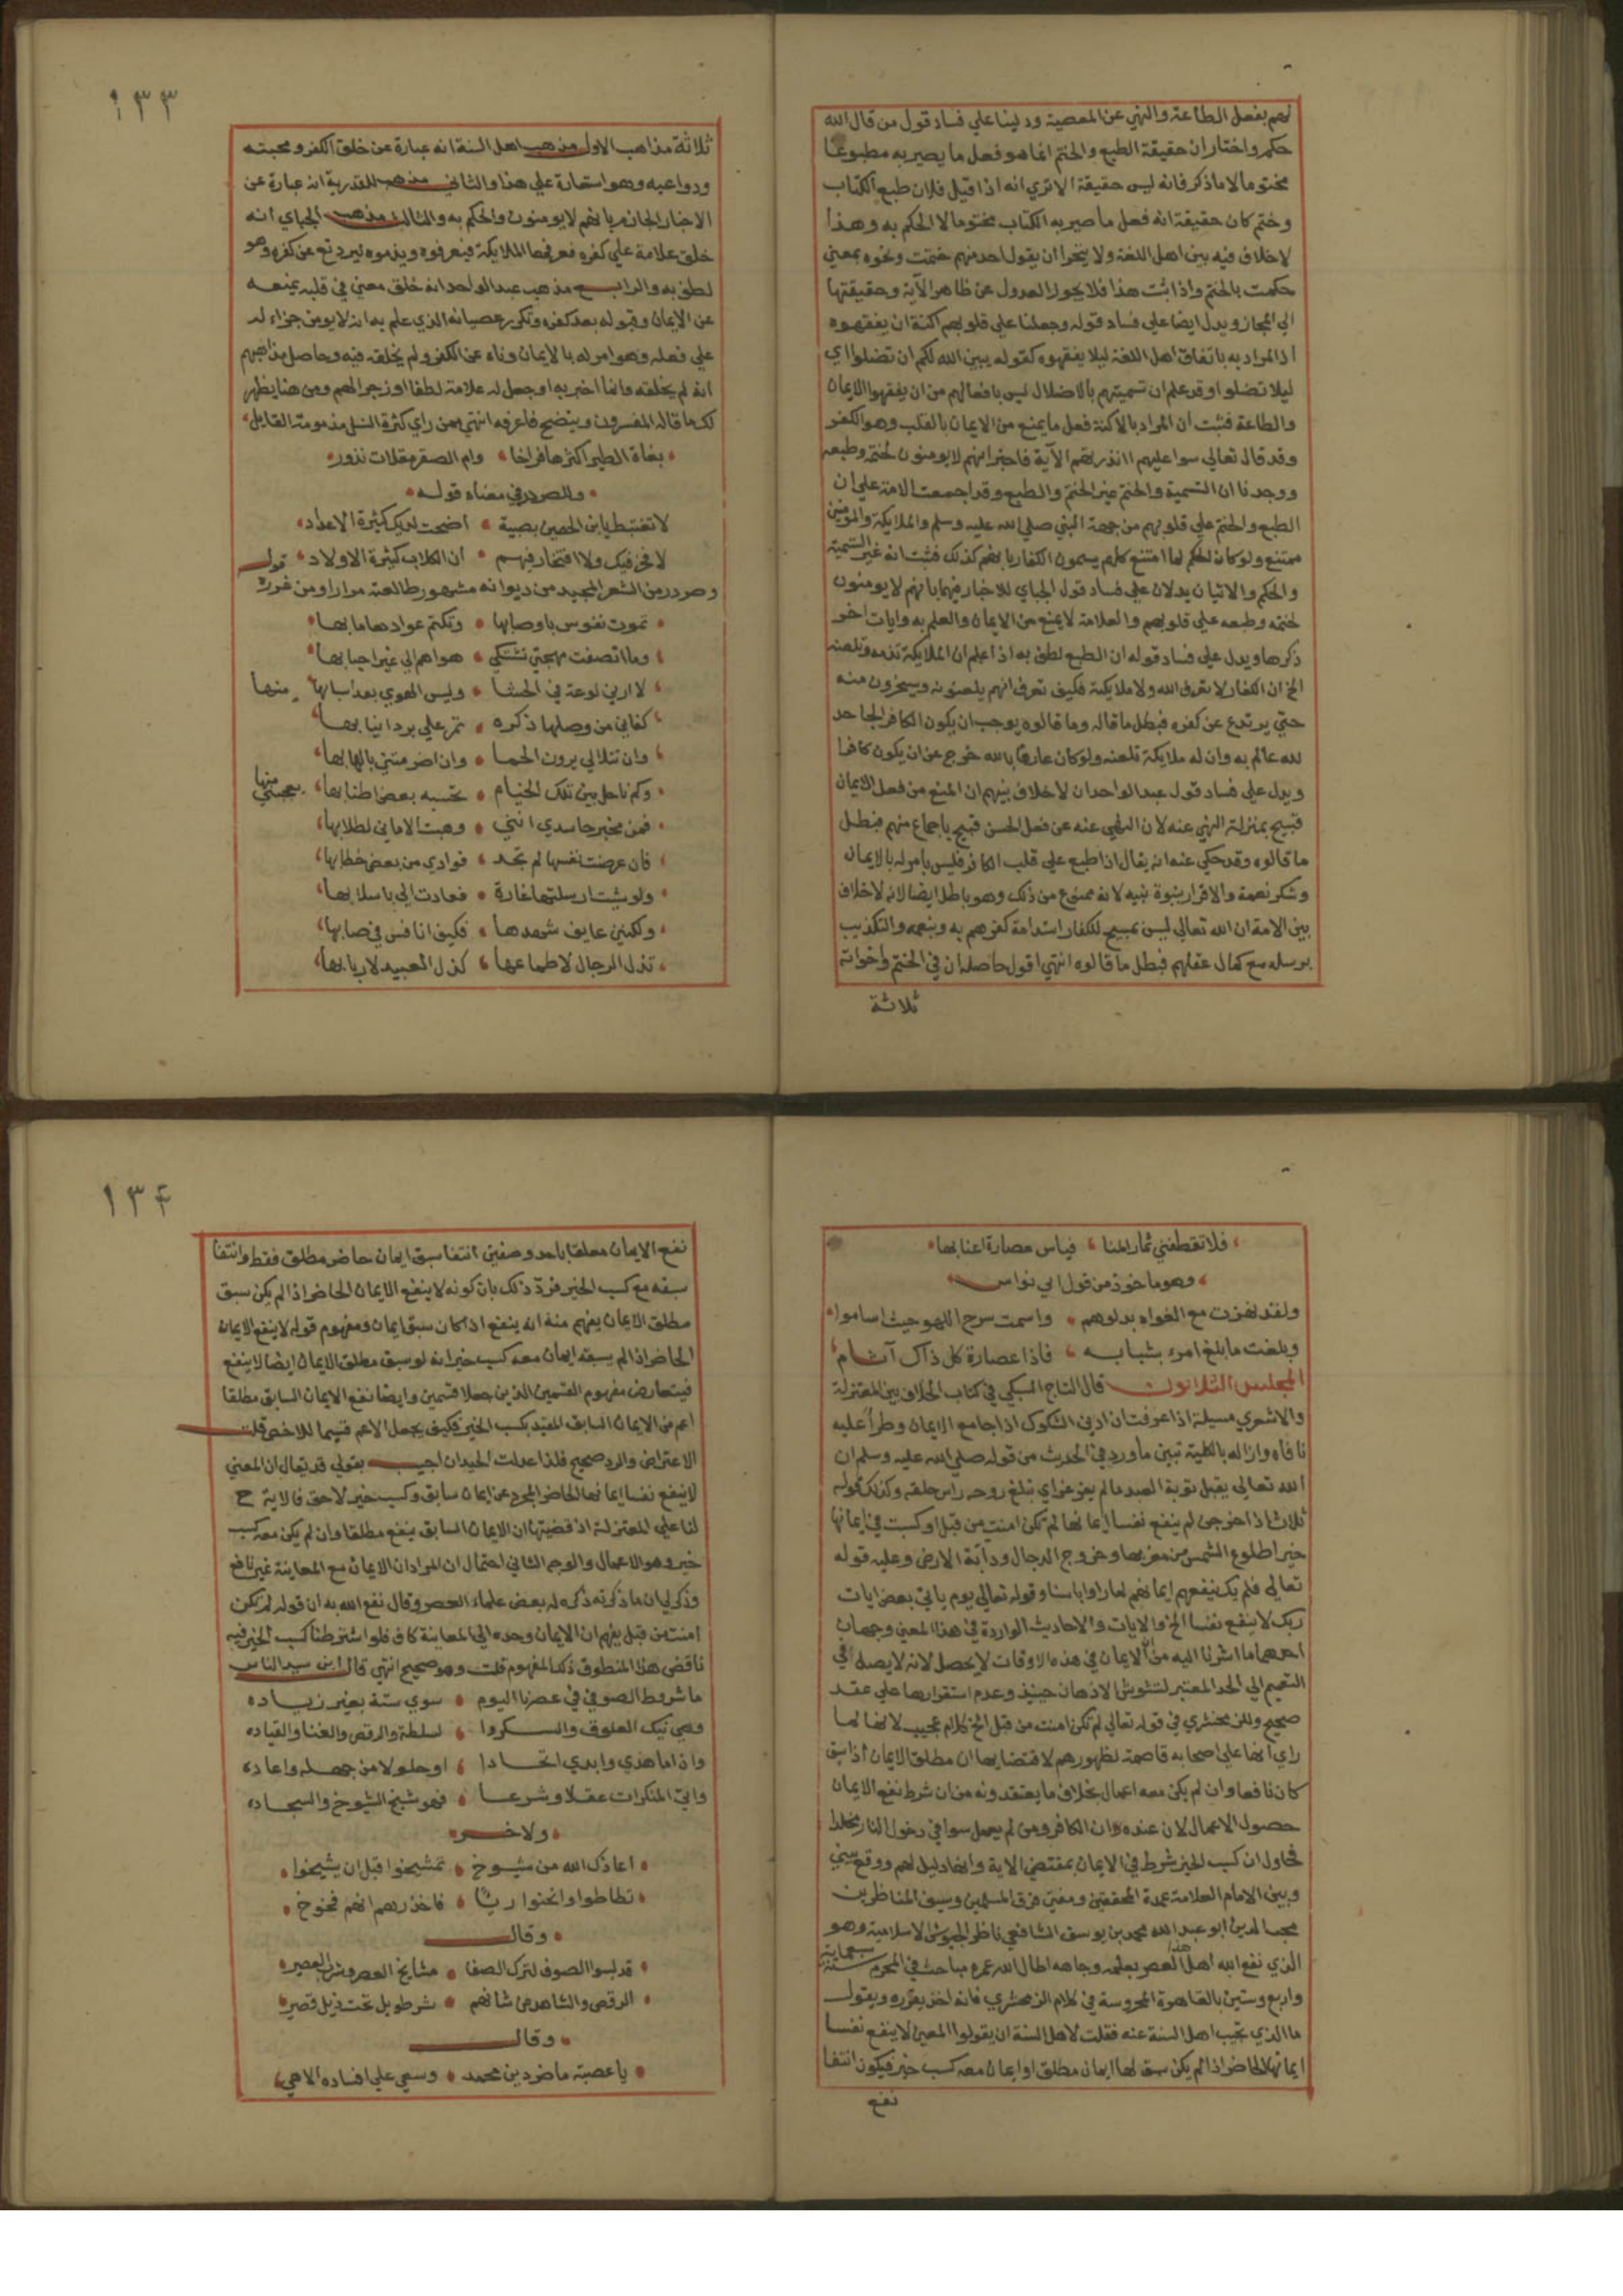 لهم بفعل الطاعة والنهي عن المعصية ودلينا علي فساد قول من قال الله
حكم واختار ان حقيقة الطبع والختم انما هو فعل ما يصير به مطبوعا
مختوما لا ما ذكر فانه ليس حقيقة الا تري انه اذا قيل فلان طبع الكتاب
وختم كان حقيقة انه فعل ما صير به الكتاب مختوما لا الحكم به وهذا
لا خلاف فيه بين اهل اللغة ولا يتجرا ان يقول احد منهم ختمت ونحوه بمعني
حكمت بالختم واذا ثبت هذا فلا يجوز العدول عن ظاهر الآية وحقيقتها
الي المجاز ويدل ايضا علي فساد قوله وجعلنا علي قلوبهم اكنة ان يفقهوه
اذ المراد به باتفاق اهل اللغة ليلا يفقهوه كقوله يبين الله لكم ان تضلوا اي
ليلا تضلوا وقد علم ان تسميتهم بالاضلال ليس بافعالهم من ان يفقهوا الايمان
والطاعة فثبت ان المراد بالاكنة فعل ما يمنع من الايمان بالقلب وهو الكفر
وقد قال تعالي سوا عليهم اانذرتهم الآية فاخبر انهم لا يومنون لختمه وطبعه
ووجدنا ان التسمية والختم غير الختم والطبع وقد اجمعت الامة علي ان
الطبع والختم علي قلوبهم من جهة النبي صلي الله عليه وسلم والملايكة والمومنين
ممتنع ولو كان الحكم لما امتنع كلهم يسمون الكفار بانهم كذلك فثبت انه غير التسمية
والحكم والاتيان يدلان علي فساد قول الجباي للاخبار فيهما بانهم لا يومنون
لختمه وطبعه علي قلوبهم والعلامة لا يمنع من الايمان والعلم به وايات اخر
ذكرها ويدل علي فساد قوله ان الطبع لطف به اذا علم ان الملايكة تذمه وتلعنه
الخ ان الكفار لا تعرف الله ولا ملايكته فكيف تعرف انهم يلعنونه ويسخرون منه
حتي يرتدع عن كفره فبطل ما قاله وما قالوه يوجب ان يكون الكافر الجاحد
لله عالم به وان له ملايكة تلعنه ولو كان عارفا بالله خرج عن ان يكون كافرا
ويدل علي فساد قول عبد الواحد ان لا خلاف بينهم ان المنع من فعل الايمان
قبيح بمنزلة النهي عنه لان النهي عنه عن فعل الحسن قبيح باجماع منهم فبطل
ما قالوه وقد حكي عنه انه يقال اذا طبع علي قلب الكافر فليس بامر له بالايمان
وشكر نعمة والاقرار بنبوة نبيه لانه ممنوع من ذلك وهو باطل ايضا لانه لا خلاف
بين الامة ان الله تعالي ليس بمبيح للكفار استدامة كفرهم به وبنعمه والتكذيب
برسله مع كمال عقلهم فبطل ما قالوه انتهي اقول حاصله ان في الختم واخواته
ثلاثة
١٣٣
ثلاثة مذاهب الاول مذهب اهل السنة انه عبارة عن خلق الكفر ومحبته
ودواعيه وهو استعارة علي هذا والثاني مذهب للقدرية انه عبارة عن
الاخبار الجازم بانهم لا يومنون والحكم به والثالث مذهب الجباي انه
خلق علامة علي كفره فعرفها الملايكة فيعرفوه ويذموه ليرتدع عن كفره وهو
لطف به والرابع مذهب عبد الواحد انه خلق معني في قلبه يمنعه
عن الايمان وقبوله بعد كفره وتكرر عصيانه الذي علم به انه لا يومن جزاء له
علي فعله وهو امر له بالايمان وناه عن الكفر ولم يخلقه فيه وحاصل مذاهبهم
انه لم يخلقه وانما اخبر به او جعل له علامة لطفا او زجرا لهم ومن هنا يظهر
لك ما قاله المفسرون ويتضح فاعرفه انتهي ممن راي كثرة النسل مذمومة القايل
بغاث الطير اكثرها فراخا وام الصقر مقلات نذور
ولصردر في معناه قوله
لا تغتبط يا ابن الحصين بصبية اضحت لديك كثيرة الاعداد
لا فخر فيك ولا افتخار فيهم ان الكلاب كثيرة الاولاد قوله
وصردر من الشعر المجيد من ديوانه مشهور طالعته مرارا ومن غرره
تموت نفوس باوصابها وتكتم عوادها ما بها
وما انصفت مهجتي تشتكي هواهم الي غير احبابها
الا ارني لوعة في الحشا وليس الهوي بعد اسبابها منها
كفاني من وصلها ذكره تمر علي برد انيابها
وان تتلالي بروق الحما وان اضرمتني بالهابها
وكم ناحل بين تلك الخيام تحسبه بعض اطنابها
فمن مخبر حاسدي انني وهبت الاماني لطلابها
فان عرضت نفسها لم تجد فوادي من بعض خطابها
ولو شئت ارسلتها غارة فعادت الي باسلابها
ولكنني عايف شهدها فكيف انافس في صابها
تذل الرجال لاطماعها كذل العبيد لاربابها
فلا تقطفني ثمار المنا فباس عصارة اعنابها
وهو ماخوذ من قول ابي نواس
ولقد نهزت مع الغواه بدلوهم واسمت سرح اللهو حيث اساموا
وبلغت ما بلغ امرء بشبابه فاذا عصارة كل ذاك آثام
المجلس الثلاثون قال التاج السبكي في كتاب الخلاف بين المعتزلة
والاشعري مسيلة اذا عرفت ان ادني الشكوك اذا جامع الايمان وطرا عليه
نافاه وازاله بالكلية تبين ما ورد في الحديث من قوله صلي الله عليه وسلم ان
الله تعالي يقبل توبة العبد ما لم يغرغر اي تبلغ روحه راس حلقه وكذلك قوله
ثلاث اذا خرجن لم ينفع نفسا ايمانها لم تكن امنت من قبل او كسبت في ايمانها
خيرا طلوع الشمس من مغربها وخروج الدجال ودابة الارض وعليه قوله
تعالي فلم يك ينفعهم ايمانهم لما راوا باسنا وقوله تعالي يوم ياتي بعض ايات
ربك لا ينفع نفسا الخ والايات والاحاديث الواردة في هذا المعني وجهان
احدهما ما اشرنا اليه من ان الايمان في هذه الاوقات لا يحصل لانه لا يصل في
التصميم الي الحد المعتبر لتشوش الاذهان حينيذ وعدم استقرارها علي عقد
صحيح وللزمخشري في قوله تعالي لم تكن امنت من قبل الخ كلام عجيب لانها لما
راي انها علي اصحابه قاصمة لظهورهم لاقتضايها ان مطلق الايمان اذا سبق
كان نافعا وان لم يكن معه اعمال بخلاف ما يعتقدونه من ان شرط نفع الايمان
حصول الاعمال لان عندهم ان الكافر ومن لم يعمل سوا في دخول النار مخلدا
فحاول ان كسب الخير شرط في الايمان بمقتضي الاية وانها دليل لهم ووقع بيني
وبين الامام العلامة عمدة المحققين ومفتي فرق المسلمين وسيف المناظرين
محب الدين ابو عبد الله محمد بن يوسف الشافعي ناظر الجيوش الاسلامية وهو
الذي نفع الله اهل هذا العصر بعلمه وجاهه اطال الله عمره مباحث في المحرم سنة سبعماية
واربع وستين بالقاهرة المحروسة في كلام الزمخشري فانه اخذ يقرره ويقول
ما الذي يجيب اهل السنة عنه فقلت لاهل السنة ان يقولوا المعني لا ينفع نفسا
ايمانها الحاضر اذا لم يكن سبق لها ايمان مطلق او ايمان معه كسب خير فيكون انتفا
نفع
١٣٤
نفع الايمان معلقا باحد وصفين انتفا سبق ايمان حاضر مطلق فقط وانتفا
سبقه مع كسب الخير فرد ذلك بان كونه لا ينفع الايمان الحاضر اذا لم يكن سبق
مطلق الايمان يفهم منه انه ينفع اذا كان سبق ايمان ومفهوم قوله لا ينفع الايمان
الحاضر اذا لم يسبقه ايمان معه كسب خير انه لو سبق مطلق الايمان ايضا لا ينفع
فيتعارض مفهوم القسمين الذين جعلا قسمين وايضا نفع الايمان السابق مطلقا
اعم من الايمان السابق المقيد بكسب الخير فكيف يجعل الاعم قسيما للاخص قلت
الاعتراض والرد صحيح فلذا عدلت الحيدان اجيب بقولي قد يقال ان المعني
لا ينفع نفسا ايمانها الحاضر المجرد عن ايمان سابق وكسب خير لاحق فالاية ح
لنا علي المعتزلة اذ قضيتها ان الايمان السابق ينفع مطلقا وان لم يكن معه كسب
خير وهو الاعمال والوجه الثاني احتمال ان المراد ان الايمان مع المعاينة غير نافع
وذكر لي ان ما ذكرته ذكره له بعض علماء العصر وقال نفع الله به ان قوله لم تكن
امنت من قبل يفهم ان الايمان وحده الي المعاينة كاف فلو اشترطنا كسب الخير فيه
ناقض هذا المنطوق ذلك المفهوم قلت وهو صحيح انتهي قال ابن سيد الناس
ما شروط الصوفي في عصرنا اليوم سوي ستة بغير زياده
وهي نيك العلوق والسكروا لسلطة والرقص والغنا والقياده
واذا ما هذي وابدي اتحادا او حلولا من جهله واعاده
واتي المنكرات عقلا وشرعا فهو شيخ الشيوخ والسجاده
ولاخر
اعاذك الله من شيوخ تمشيخوا قبل ان يشيخوا
تطاطوا وانحنوا ريا فاحذرهم انهم فخوخ
وقال
قد لبسوا الصوف لترك الصفا مشايخ العصر وشرب العصير
الرقص والشاهد من شانهم شر طويل تحت ذيل قصير
وقال
يا عصبة ما ضر دين محمد وسعي علي افساده الا هي